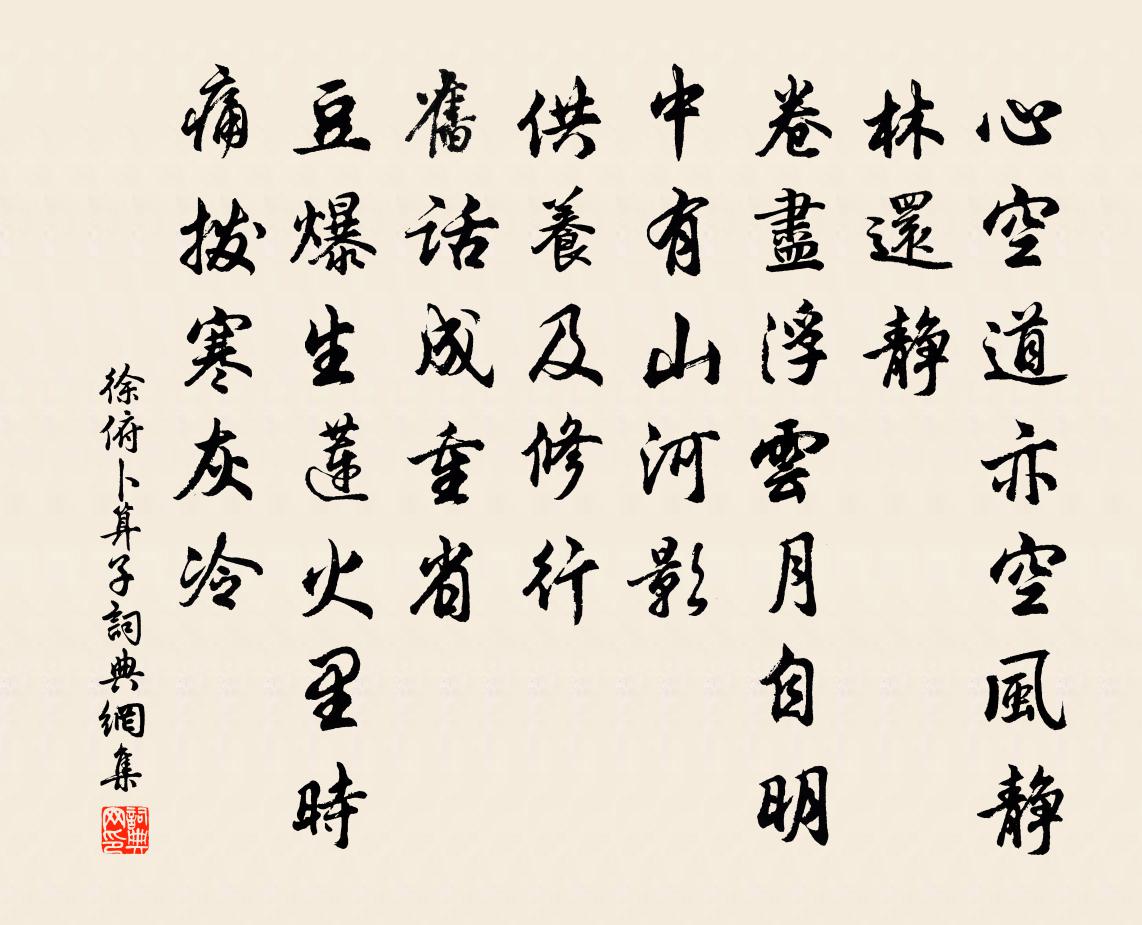 心空道亦空風静
林還静
卷盡浮雲月自明
中有山河影
供養及修行
舊話成重省
豆爆生蓮火里時
痛撥寒灰冷
徐俯卜算子詞典網集
詞典网印